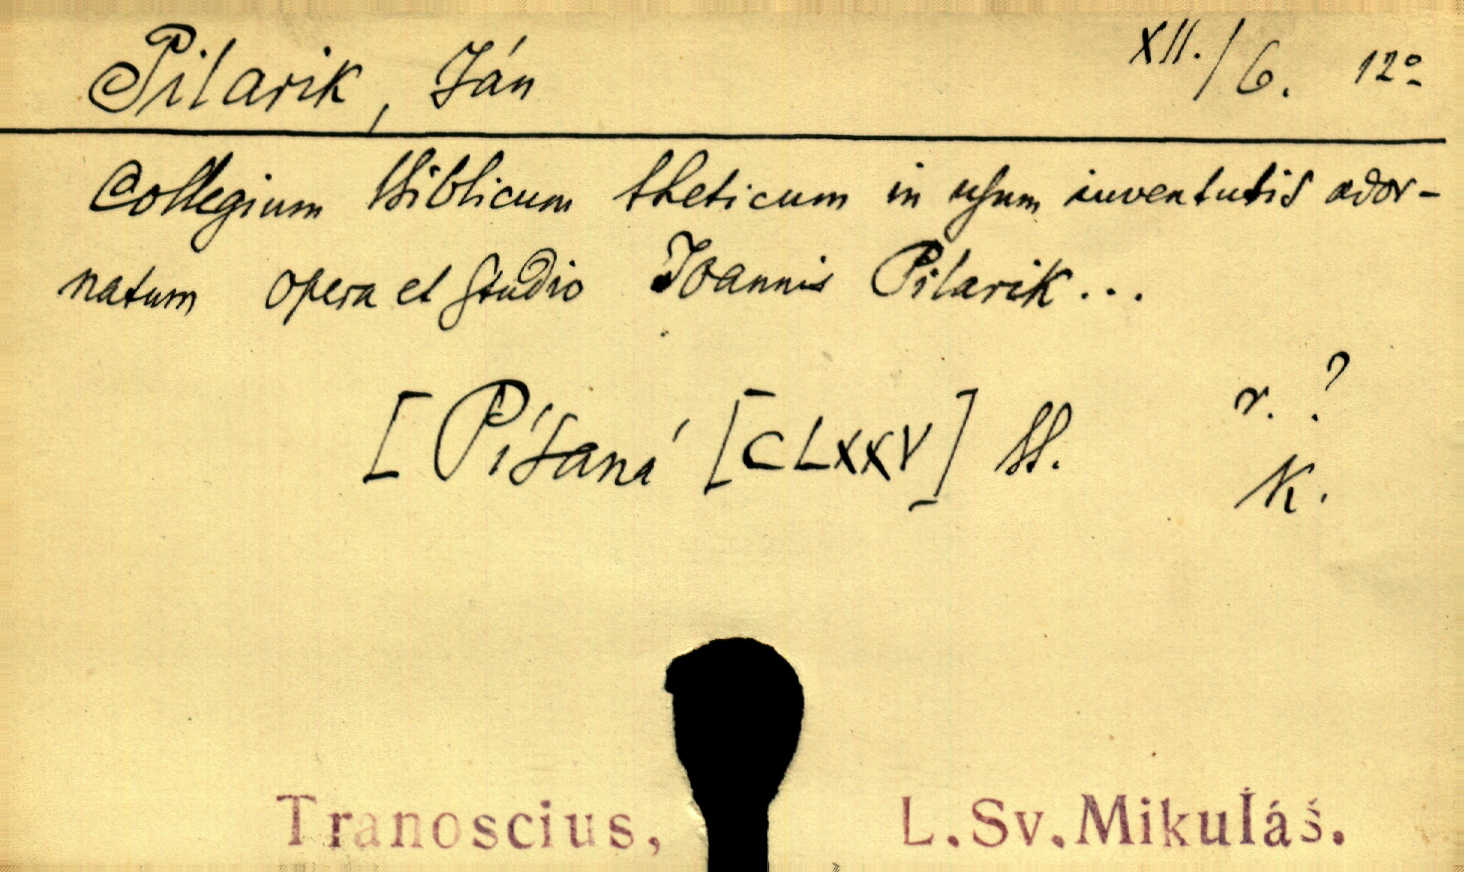 Pilarik, Ján XII./6. 12º
Collegium Biblicum theticum in usum iuventutis ador-
natum opera et studio Joannis Pilarik...
r. ?
[Písaná [CLXXV] st.
K.
Tranoscius, L.Sv.Mikuláš.